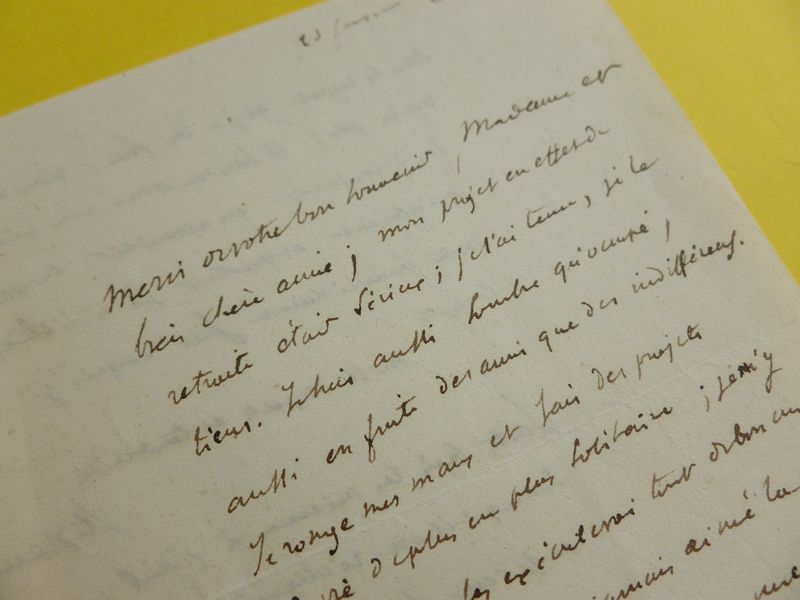 Merci de votre bon souvenir, Madame et
bien chère amie ; mon projet en effet de
retraite était sérieux ; je l'ai tenu, je le
tiens. Je suis aussi sombre qu'occupé,
aussi en fuite des amis que des indifférens.
Je ronge mes maux et fais des projets
de plus en plus solitaire ; je n'y
les exécuterai tout de bon
jamais aimé la